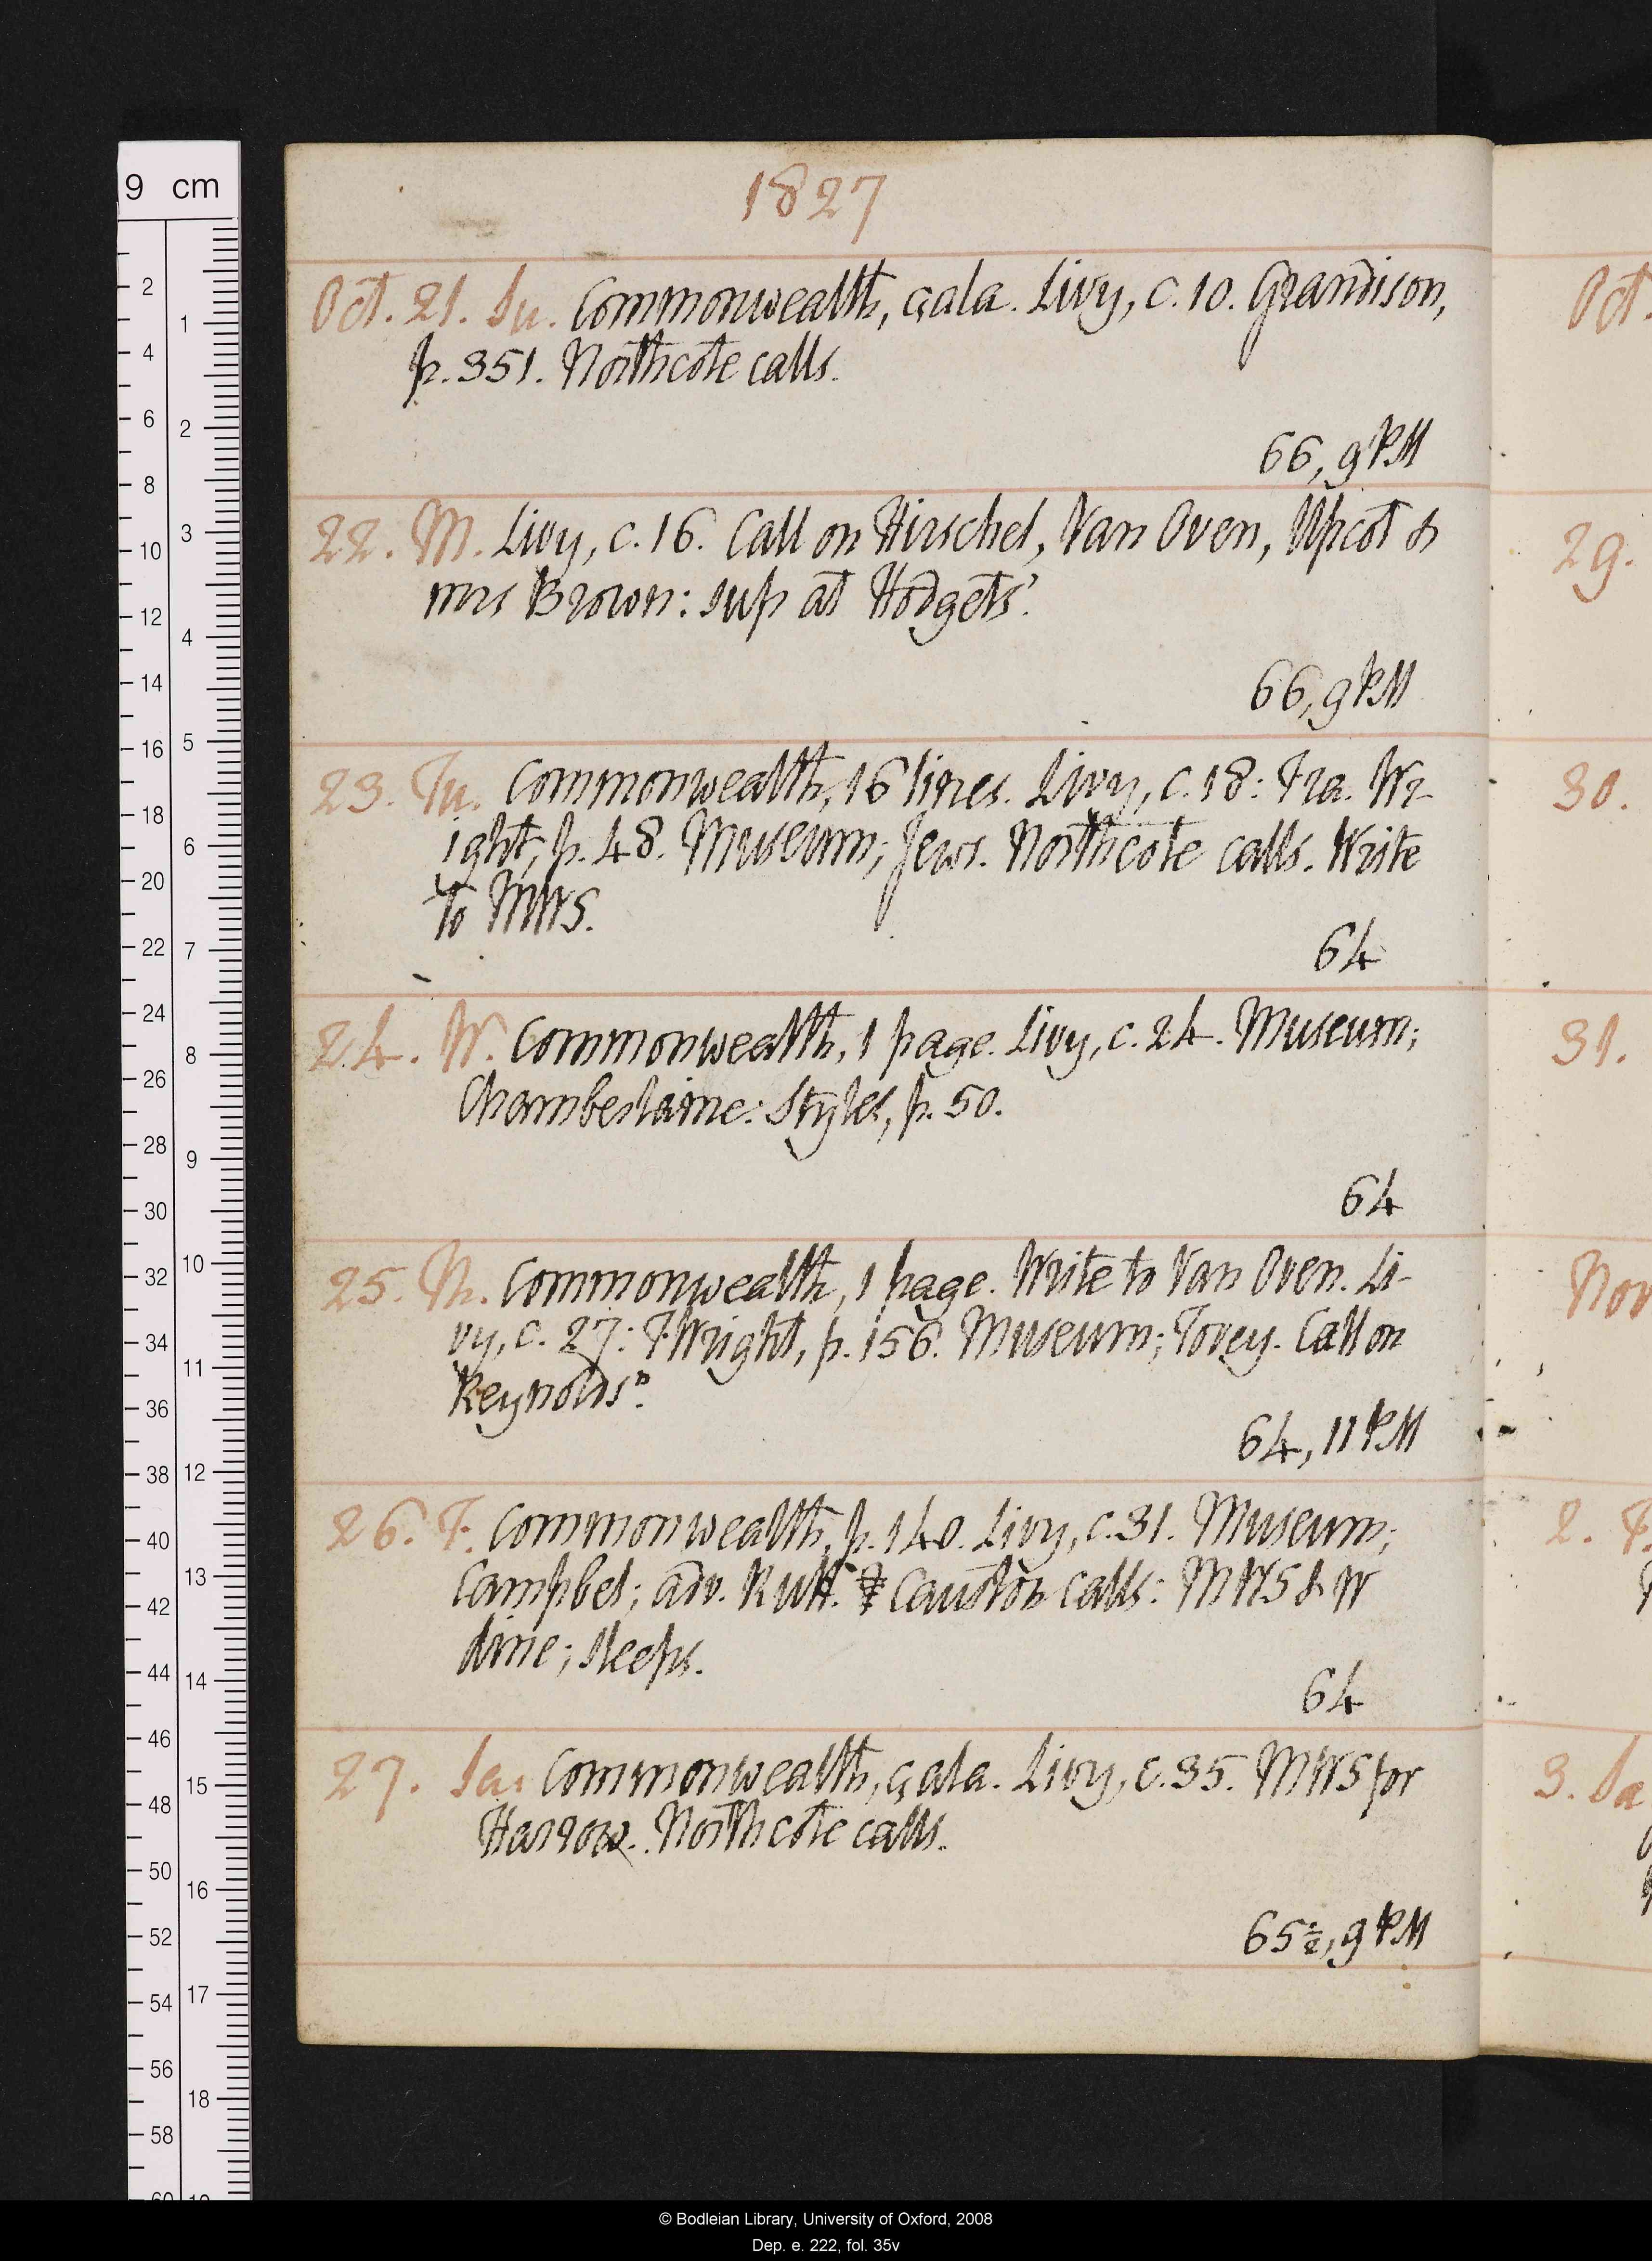 1827
Oct. 21. Su. Commonwealth, çala. Livy, c. 10. Grandison,
p. 351. Northcote calls.
66, 9 PM
22. M. Livy, c. 16. Call on Hirschel, Van Oven, Upcot &
mrs Brown: sup at Hodgets'.
66, 9 PM
23. Tu. Commonwealth, 16 lines. Livy, c. 18: Fra. Wr-
ight, p. 48. Museum; Jews. Northcote calls. Write
to MWS.
64
24. W. Commonwealth, 1 page. Livy, c. 24. Museum;
Chamberlaine: Styles, p. 50.
64
25. Th. Commonwealth, 1 page. Write to Van Oven. Li-
vy, c. 27: F. Wright, p. 156. Museum; Tovey. Call on
Reynolds.
64, 11 PM
26. F. Commonwealth, p. 140. Livy, c. 31. Museum;
Campbel; adv. Rutt. Caustón calls: MWS & W
dine; sleeps.
64
27. Sa. Commonwealth, çala. Livy, c. 35. MWS for
Harrow. Northcote calls.
65½, 9 PM
Oct.
29.
30.
31.
Nov
2. F.
3. Sa
9 cm
2
4
6
8
10
12
14
16
18
20
22
24
26
28
30
32
34
36
38
40
42
44
46
48
50
52
54
56
58
60
1
2
3
4
5
6
7
8
9
10
11
12
13
14
15
16
17
18
19
© Bodleian Library, University of Oxford, 2008
Dep. e. 222, fol. 35v